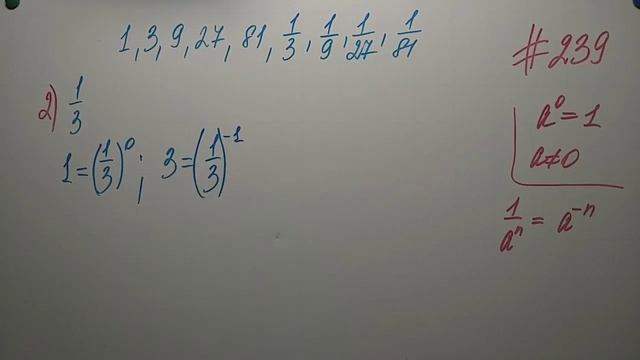 1, 3, 9, 27, 81, 1/3, 1/9, 1/27, 1/81
#239
2) 1/3
1 = (1/3)^0; 3 = (1/3)^-1
a^0 = 1
a≠0
1/a^n = a^-n